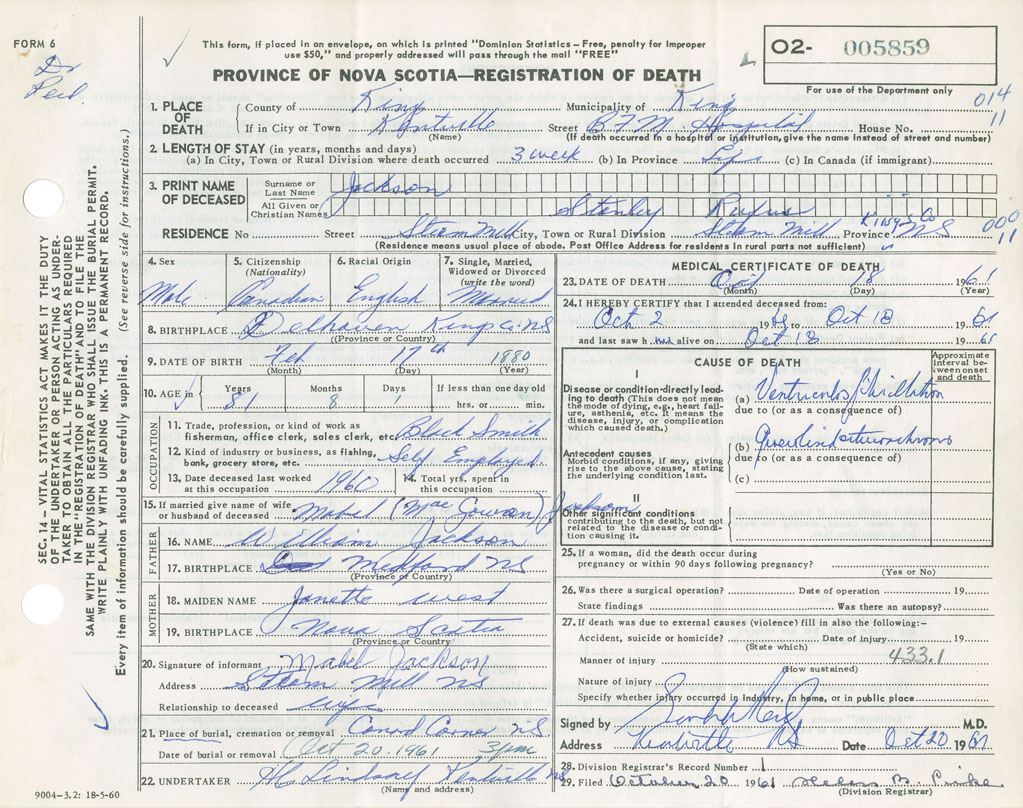 FORM 6
Dr
This form, if placed in an envelope, on which is printed "Dominion Statistics – Free, penalty for improper
use $50," and properly addressed will pass through the mail "FREE"
O2- 005859
PROVINCE OF NOVA SCOTIA—REGISTRATION OF DEATH
For use of the Department only
014
11
1. PLACE OF DEATH
County of Kings Municipality of Kings
If in City or Town Kentville Street BFM Hospital House No.
(Name) (If death occurred in a hospital or institution, give the name instead of street and number)
2. LENGTH OF STAY (in years, months and days)
(a) In City, Town or Rural Division where death occurred 3 week (b) In Province Life (c) In Canada (if immigrant)
3. PRINT NAME OF DECEASED
Surname or Last Name Jackson
All Given or Christian Names Stanley Rufus
Kings Co
RESIDENCE No Street Steam Mill City, Town or Rural Division Steam Mill Province NS
000
11
(Residence means usual place of abode. Post Office Address for residents in rural parts not sufficient)
4. Sex Male
5. Citizenship (Nationality) Canadian
6. Racial Origin English
7. Single, Married, Widowed or Divorced (write the word) Married
8. BIRTHPLACE Delhaven Kings Co NS
(Province or Country)
9. DATE OF BIRTH Feb 17th 1880
(Month) (Day) (Year)
10. AGE in Years 81 Months 8 Days 1 If less than one day old hrs. or min.
OCCUPATION
11. Trade, profession, or kind of work as fisherman, office clerk, sales clerk, etc. Black Smith
12. Kind of industry or business, as fishing, bank, grocery store, etc. Self Employed.
13. Date deceased last worked at this occupation 1960
14. Total yrs. spent in this occupation
15. If married give name of wife or husband of deceased Mabel (MacGowan) Jackson
FATHER
16. NAME William Jackson
17. BIRTHPLACE Medford NS
(Province or Country)
MOTHER
18. MAIDEN NAME Janette West
19. BIRTHPLACE Nova Scotia
(Province or Country)
20. Signature of informant Mabel Jackson
Address Steam Mill NS
Relationship to deceased wife
21. Place of burial, cremation or removal Canard Corner NS
Date of burial or removal Oct 20 1961 3 pm
22. UNDERTAKER Lindsay Kentville NS
(Name and address)
9004-3.2: 18-5-60
MEDICAL CERTIFICATE OF DEATH
23. DATE OF DEATH Oct 18 1961
(Month) (Day) (Year)
24. I HEREBY CERTIFY that I attended deceased from:
Oct 2 1961 to Oct 18 1961
and last saw him alive on Oct 18 1961
CAUSE OF DEATH
Approximate interval between onset and death
I
Disease or condition-directly leading to death (This does not mean the mode of dying, e.g., heart failure, asthenia, etc. It means the disease, injury, or complication which caused death.)
(a) Ventricular Fibrillation
due to (or as a consequence of)
Antecedent causes
Morbid condition, if any, giving rise to the above cause, stating the underlying condition last.
(b)
due to (or as a consequence of)
(c)
II
Other significant conditions
contributing to the death, but not related to the disease or condition causing it.
25. If a woman, did the death occur during
pregnancy or within 90 days following pregnancy?
(Yes or No)
26. Was there a surgical operation? Date of operation 19
State findings Was there an autopsy?
27. If death was due to external causes (violence) fill in also the following:–
Accident, suicide or homicide? Date of injury 19
(State which)
433.1
Manner of injury
(How sustained)
Nature of injury
Specify whether injury occurred in Industry, in home, or in public place
Signed by M.D.
Address Kentville NS Date Oct 20 1961
28. Division Registrar's Record Number 1
29. Filed October 20 1961 B.
(Division Registrar)
SEC. 14 – VITAL STATISTICS ACT MAKES IT THE DUTY
OF THE UNDERTAKER OR PERSON ACTING AS UNDER-
TAKER TO OBTAIN ALL THE PARTICULARS REQUIRED
IN THE "REGISTRATION OF DEATH" AND TO FILE THE
SAME WITH THE DIVISION REGISTRAR WHO SHALL ISSUE THE BURIAL PERMIT.
WRITE PLAINLY WITH UNFADING INK. THIS IS A PERMANENT RECORD.
Every item of information should be carefully supplied. (See reverse side for instructions.)